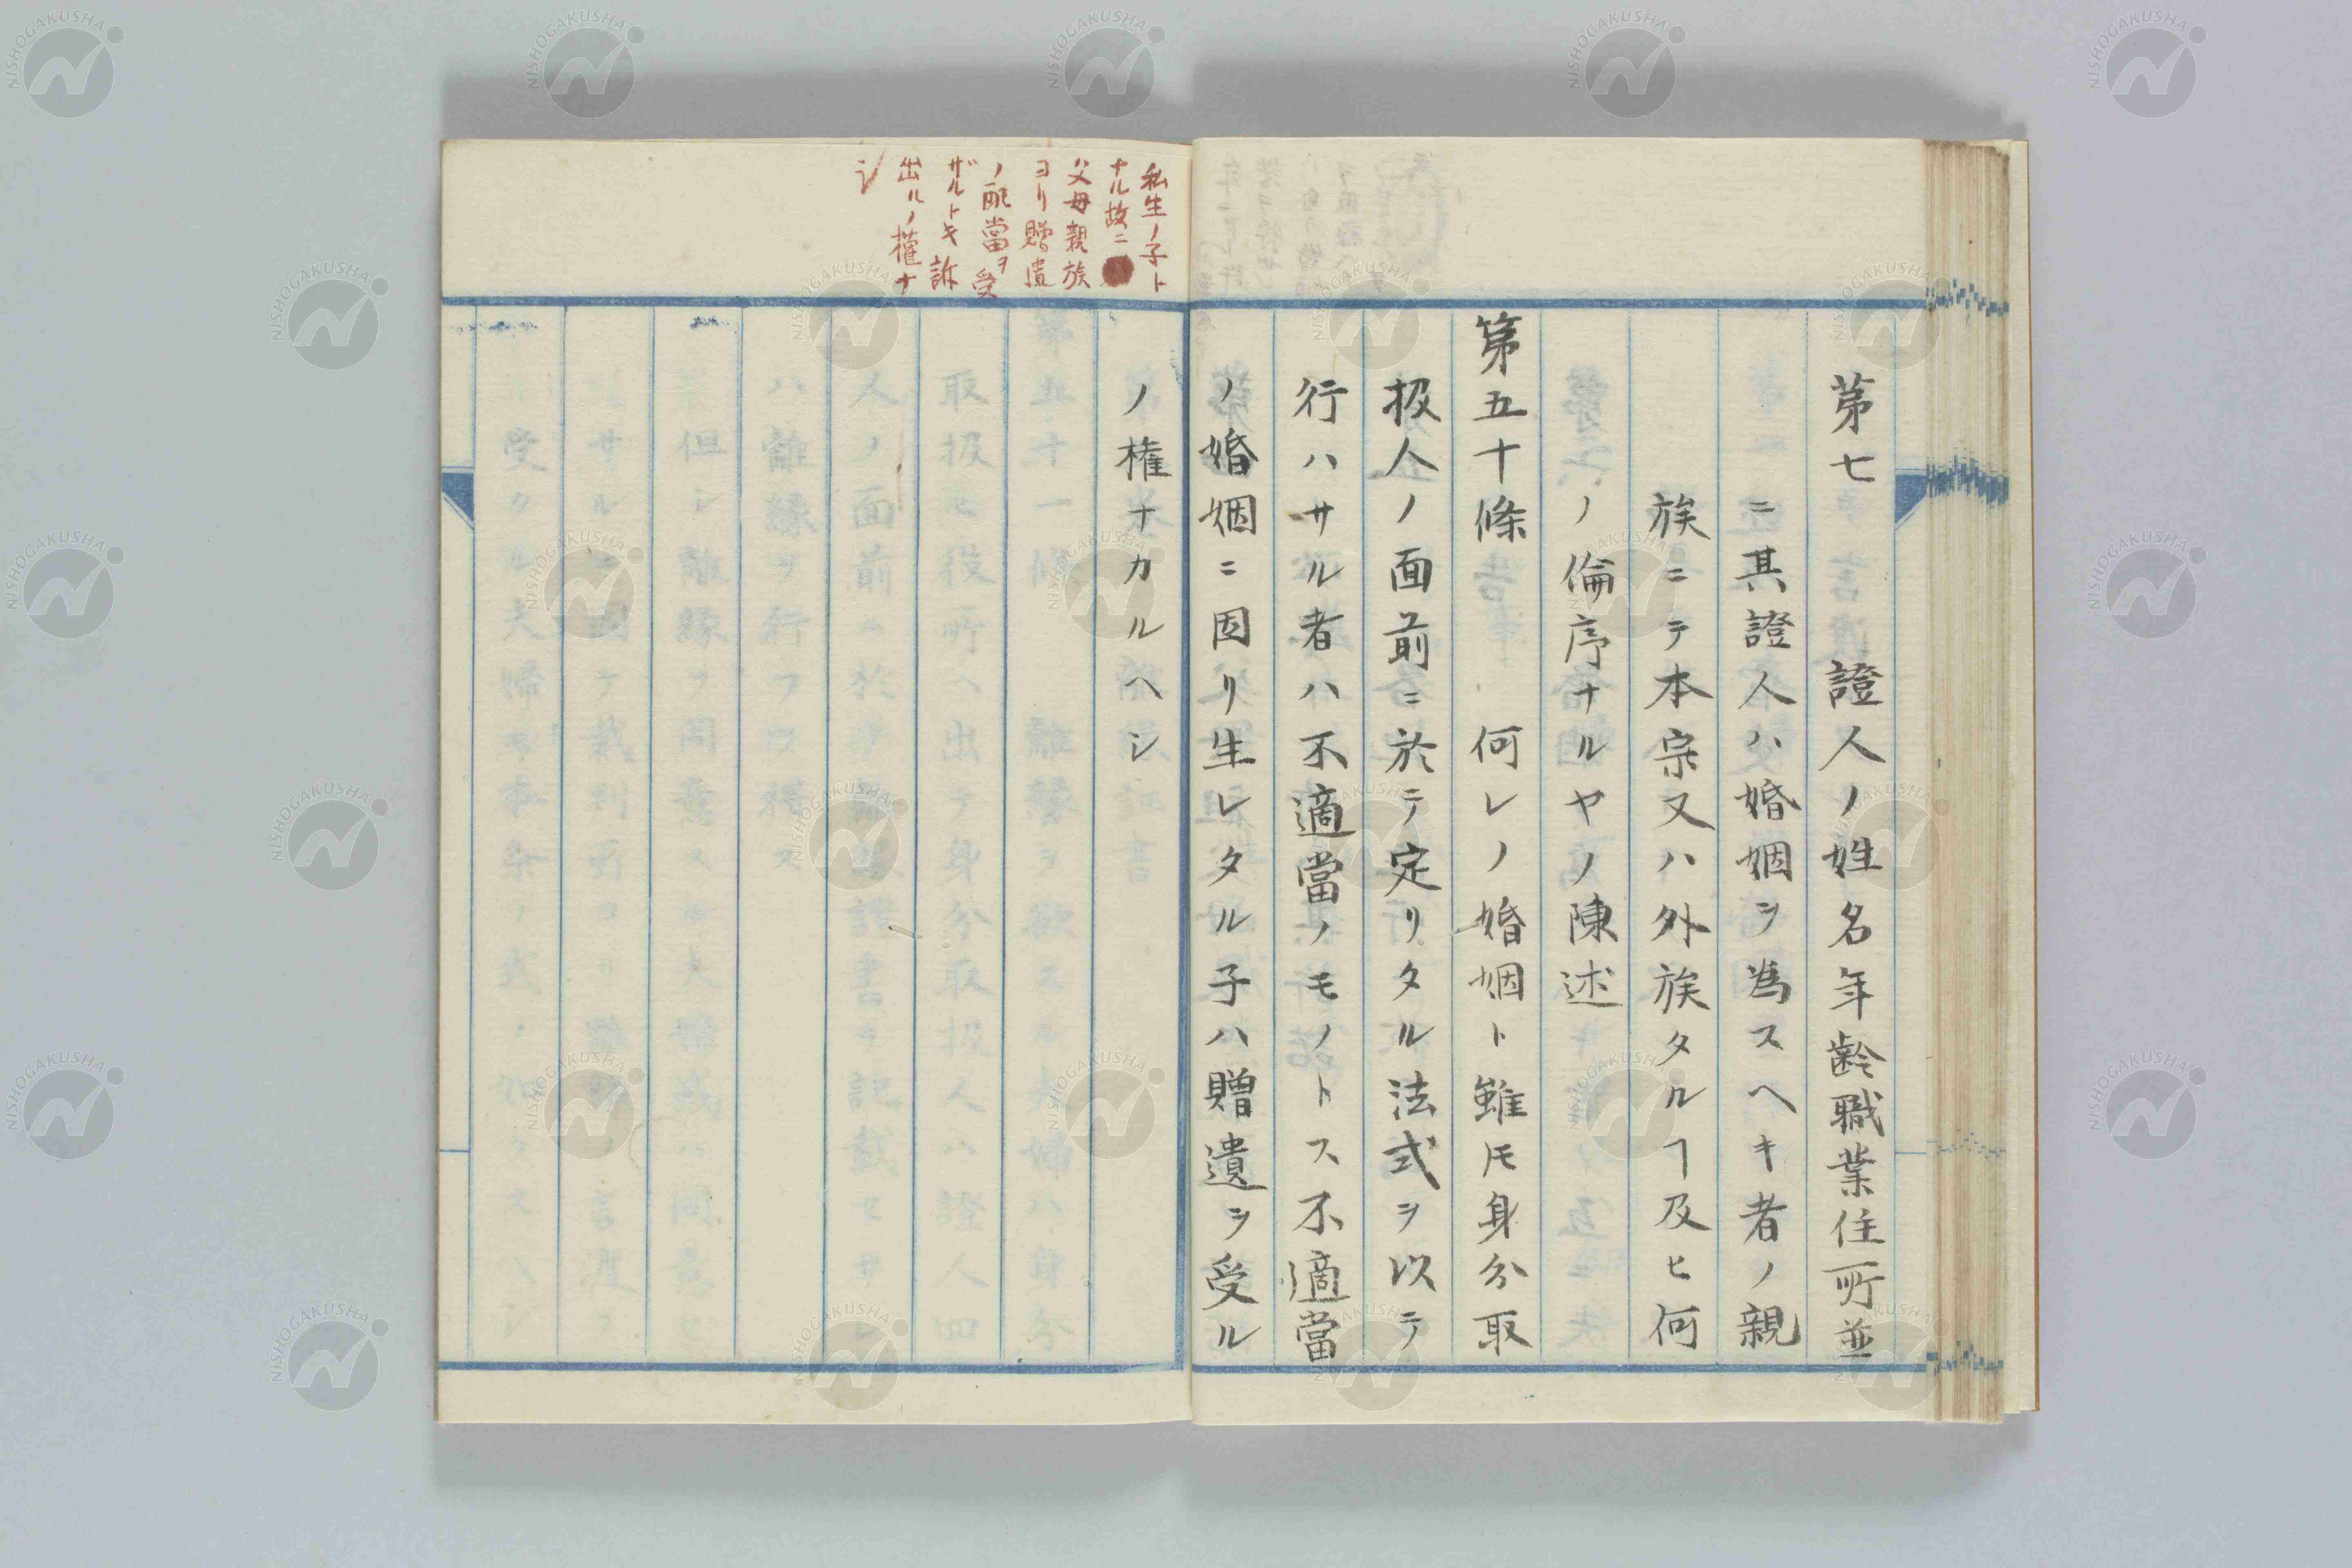 第七 證人ノ姓名年齢職業住所並
ニ其證人ハ婚姻ヲ為スヘキ者ノ親
族ニテ本宗又ハ外族タルヿ及ヒ何
ノ倫序ナルヤノ陳述
第五十條 何レノ婚姻ト雖モ身分取
扱人ノ面前ニ於テ定リタル法式ヲ以テ
行ハサル者ハ不適當ノモノトス不適當
ノ婚姻ニ因リ生レタル子ハ贈遺ヲ受ル
ノ権ナカルヘシ
私生ノ子ト
ナル故ニ
父母親族
ヨリ贈遺
ノ配當ヲ受
ザルトキ訴
出ルノ権ナ
シ
NISHOGAKUSHA